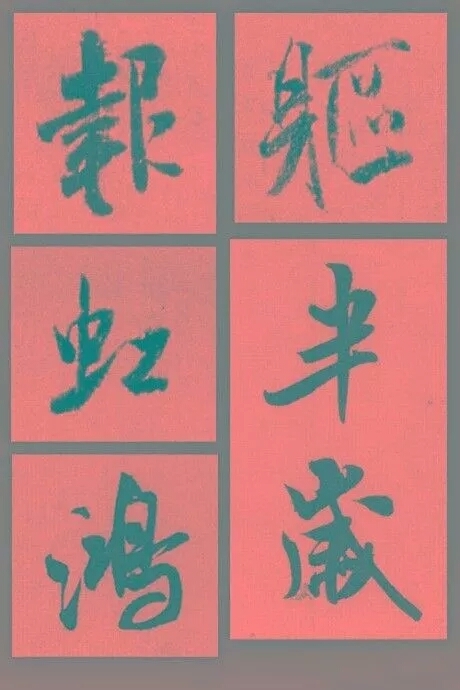 軀
半
歲
報
虹
鴻